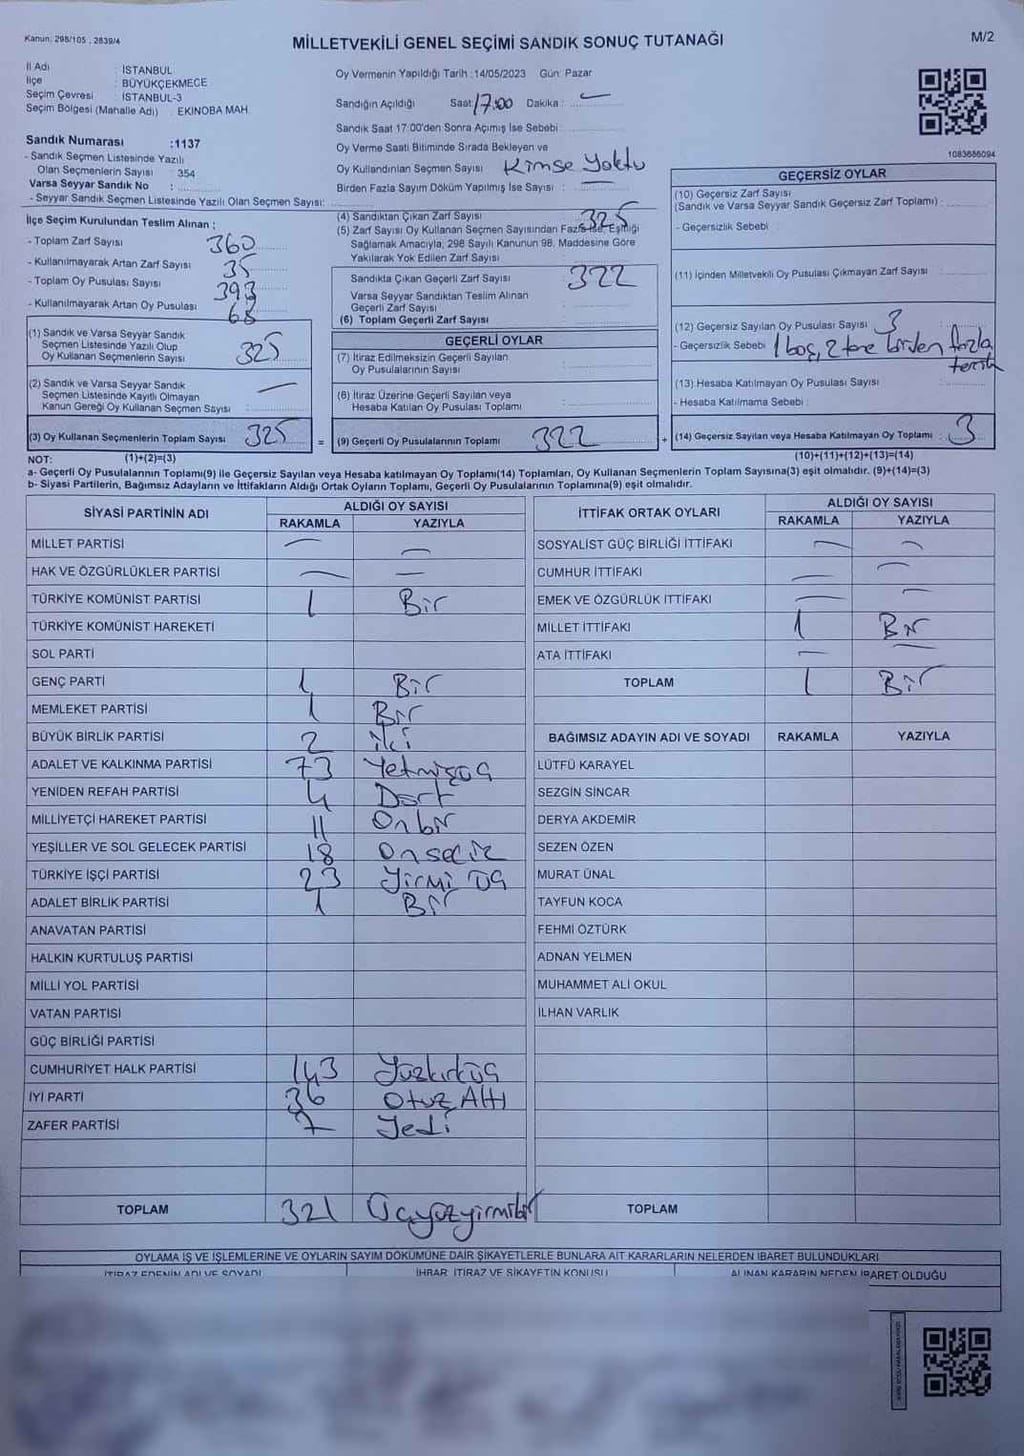 Kanun: 298/105 , 2839/4
MİLLETVEKİLİ GENEL SEÇİMİ SANDIK SONUÇ TUTANAĞI
M/2
İl Adı : İSTANBUL
İlçe : BÜYÜKÇEKMECE
Seçim Çevresi : İSTANBUL-3
Seçim Bölgesi (Mahalle Adı) : EKİNOBA MAH.
Sandık Numarası :1137
- Sandık Seçmen Listesinde Yazılı
Olan Seçmenlerin Sayısı : 354
Varsa Seyyar Sandık No :
- Seyyar Sandık Seçmen Listesinde Yazılı Olan Seçmen Sayısı:
Oy Vermenin Yapıldığı Tarih :14/05/2023 Gün: Pazar
Sandığın Açıldığı Saat: 17:00 Dakika : —
Sandık Saat 17:00'den Sonra Açımış İse Sebebi:
Oy Verme Saati Bitiminde Sırada Bekleyen ve
Oy Kullandırılan Seçmen Sayısı : Kimse Yoktu
Birden Fazla Sayım Döküm Yapılmış İse Sayısı : —
1083686094
İlçe Seçim Kurulundan Teslim Alınan :
- Toplam Zarf Sayısı 360
- Kullanılmayarak Artan Zarf Sayısı 35
- Toplam Oy Pusulası Sayısı 393
- Kullanılmayarak Artan Oy Pusulası 68
(1) Sandık ve Varsa Seyyar Sandık
Seçmen Listesinde Yazılı Olup
Oy Kullanan Seçmenlerin Sayısı 325
(2) Sandık ve Varsa Seyyar Sandık
Seçmen Listesinde Kayıtlı Olmayan
Kanun Gereği Oy Kullanan Seçmen Sayısı : —
(3) Oy Kullanan Seçmenlerin Toplam Sayısı 325 =
(4) Sandıktan Çıkan Zarf Sayısı 325
(5) Zarf Sayısı Oy Kullanan Seçmen Sayısından Fazla İse, Eşitliği
Sağlamak Amacıyla, 298 Sayılı Kanunun 98. Maddesine Göre
Yakılarak Yok Edilen Zarf Sayısı
Sandıkta Çıkan Geçerli Zarf Sayısı 322
Varsa Seyyar Sandıktan Teslim Alınan
Geçerli Zarf Sayısı
(6) Toplam Geçerli Zarf Sayısı
GEÇERLİ OYLAR
(7) İtiraz Edilmeksizin Geçerli Sayılan
Oy Pusulalarının Sayısı
(8) İtiraz Üzerine Geçerli Sayılan veya
Hesaba Katılan Oy Pusulası Toplamı
(9) Geçerli Oy Pusulalarının Toplamı 322 +
GEÇERSİZ OYLAR
(10) Geçersiz Zarf Sayısı
(Sandık ve Varsa Seyyar Sandık Geçersiz Zarf Toplamı) :
- Geçersizlik Sebebi :
(11) İçinden Milletvekili Oy Pusulası Çıkmayan Zarf Sayısı :
(12) Geçersiz Sayılan Oy Pusulası Sayısı 3
- Geçersizlik Sebebi : 1 boş, 2 tane birden fazla
(13) Hesaba Katılmayan Oy Pusulası Sayısı
- Hesaba Katılmama Sebebi :
(14) Geçersiz Sayılan veya Hesaba Katılmayan Oy Toplamı : 3
NOT: (1)+(2)=(3)
(10)+(11)+(12)+(13)=(14)
a- Geçerli Oy Pusulalarının Toplamı(9) ile Geçersiz Sayılan veya Hesaba katılmayan Oy Toplamı(14) Toplamları, Oy Kullanan Seçmenlerin Toplam Sayısına(3) eşit olmalıdır. (9)+(14)=(3)
b- Siyasi Partilerin, Bağımsız Adayların ve İttifakların Aldığı Ortak Oyların Toplamı, Geçerli Oy Pusulalarının Toplamına(9) eşit olmalıdır.
SİYASİ PARTİNİN ADI
ALDIĞI OY SAYISI
RAKAMLA YAZIYLA
MİLLET PARTİSİ — —
HAK VE ÖZGÜRLÜKLER PARTİSİ — —
TÜRKİYE KOMÜNİST PARTİSİ 1 Bir
TÜRKİYE KOMÜNİST HAREKETİ
SOL PARTİ
GENÇ PARTİ 1 Bir
MEMLEKET PARTİSİ 1 Bir
BÜYÜK BİRLİK PARTİSİ 2 iki
ADALET VE KALKINMA PARTİSİ 73 Yetmişüç
YENİDEN REFAH PARTİSİ 4 Dört
MİLLİYETÇİ HAREKET PARTİSİ 11 Onbir
YEŞİLLER VE SOL GELECEK PARTİSİ 18 Onsekiz
TÜRKİYE İŞÇİ PARTİSİ 23 Yirmi Üç
ADALET BİRLİK PARTİSİ 1 Bir
ANAVATAN PARTİSİ
HALKIN KURTULUŞ PARTİSİ
MİLLİ YOL PARTİSİ
VATAN PARTİSİ
GÜÇ BİRLİĞİ PARTİSİ
CUMHURİYET HALK PARTİSİ 143 Yüzkırküç
İYİ PARTİ 36 Otuz Altı
ZAFER PARTİSİ 7 Yedi
TOPLAM 321 Üçyüzyirmibir
İTTİFAK ORTAK OYLARI
ALDIĞI OY SAYISI
RAKAMLA YAZIYLA
SOSYALİST GÜÇ BİRLİĞİ İTTİFAKI — —
CUMHUR İTTİFAKI — —
EMEK VE ÖZGÜRLÜK İTTİFAKI — —
MİLLET İTTİFAKI 1 Bir
ATA İTTİFAKI — —
TOPLAM 1 Bir
BAĞIMSIZ ADAYIN ADI VE SOYADI RAKAMLA YAZIYLA
LÜTFÜ KARAYEL
SEZGİN SİNCAR
DERYA AKDEMİR
SEZEN ÖZEN
MURAT ÜNAL
TAYFUN KOCA
FEHMİ ÖZTÜRK
ADNAN YELMEN
MUHAMMET ALİ OKUL
İLHAN VARLIK
TOPLAM
OYLAMA İŞ VE İŞLEMLERİNE VE OYLARIN SAYIM DÖKÜMÜNE DAİR ŞİKAYETLERLE BUNLARA AİT KARARLARIN NELERDEN İBARET BULUNDUKLARI
İTİRAZ EDENİN ADI VE SOYADI İHBAR İTİRAZ VE ŞİKAYETİN KONUSU ALINAN KARARIN NEDEN İBARET OLDUĞU